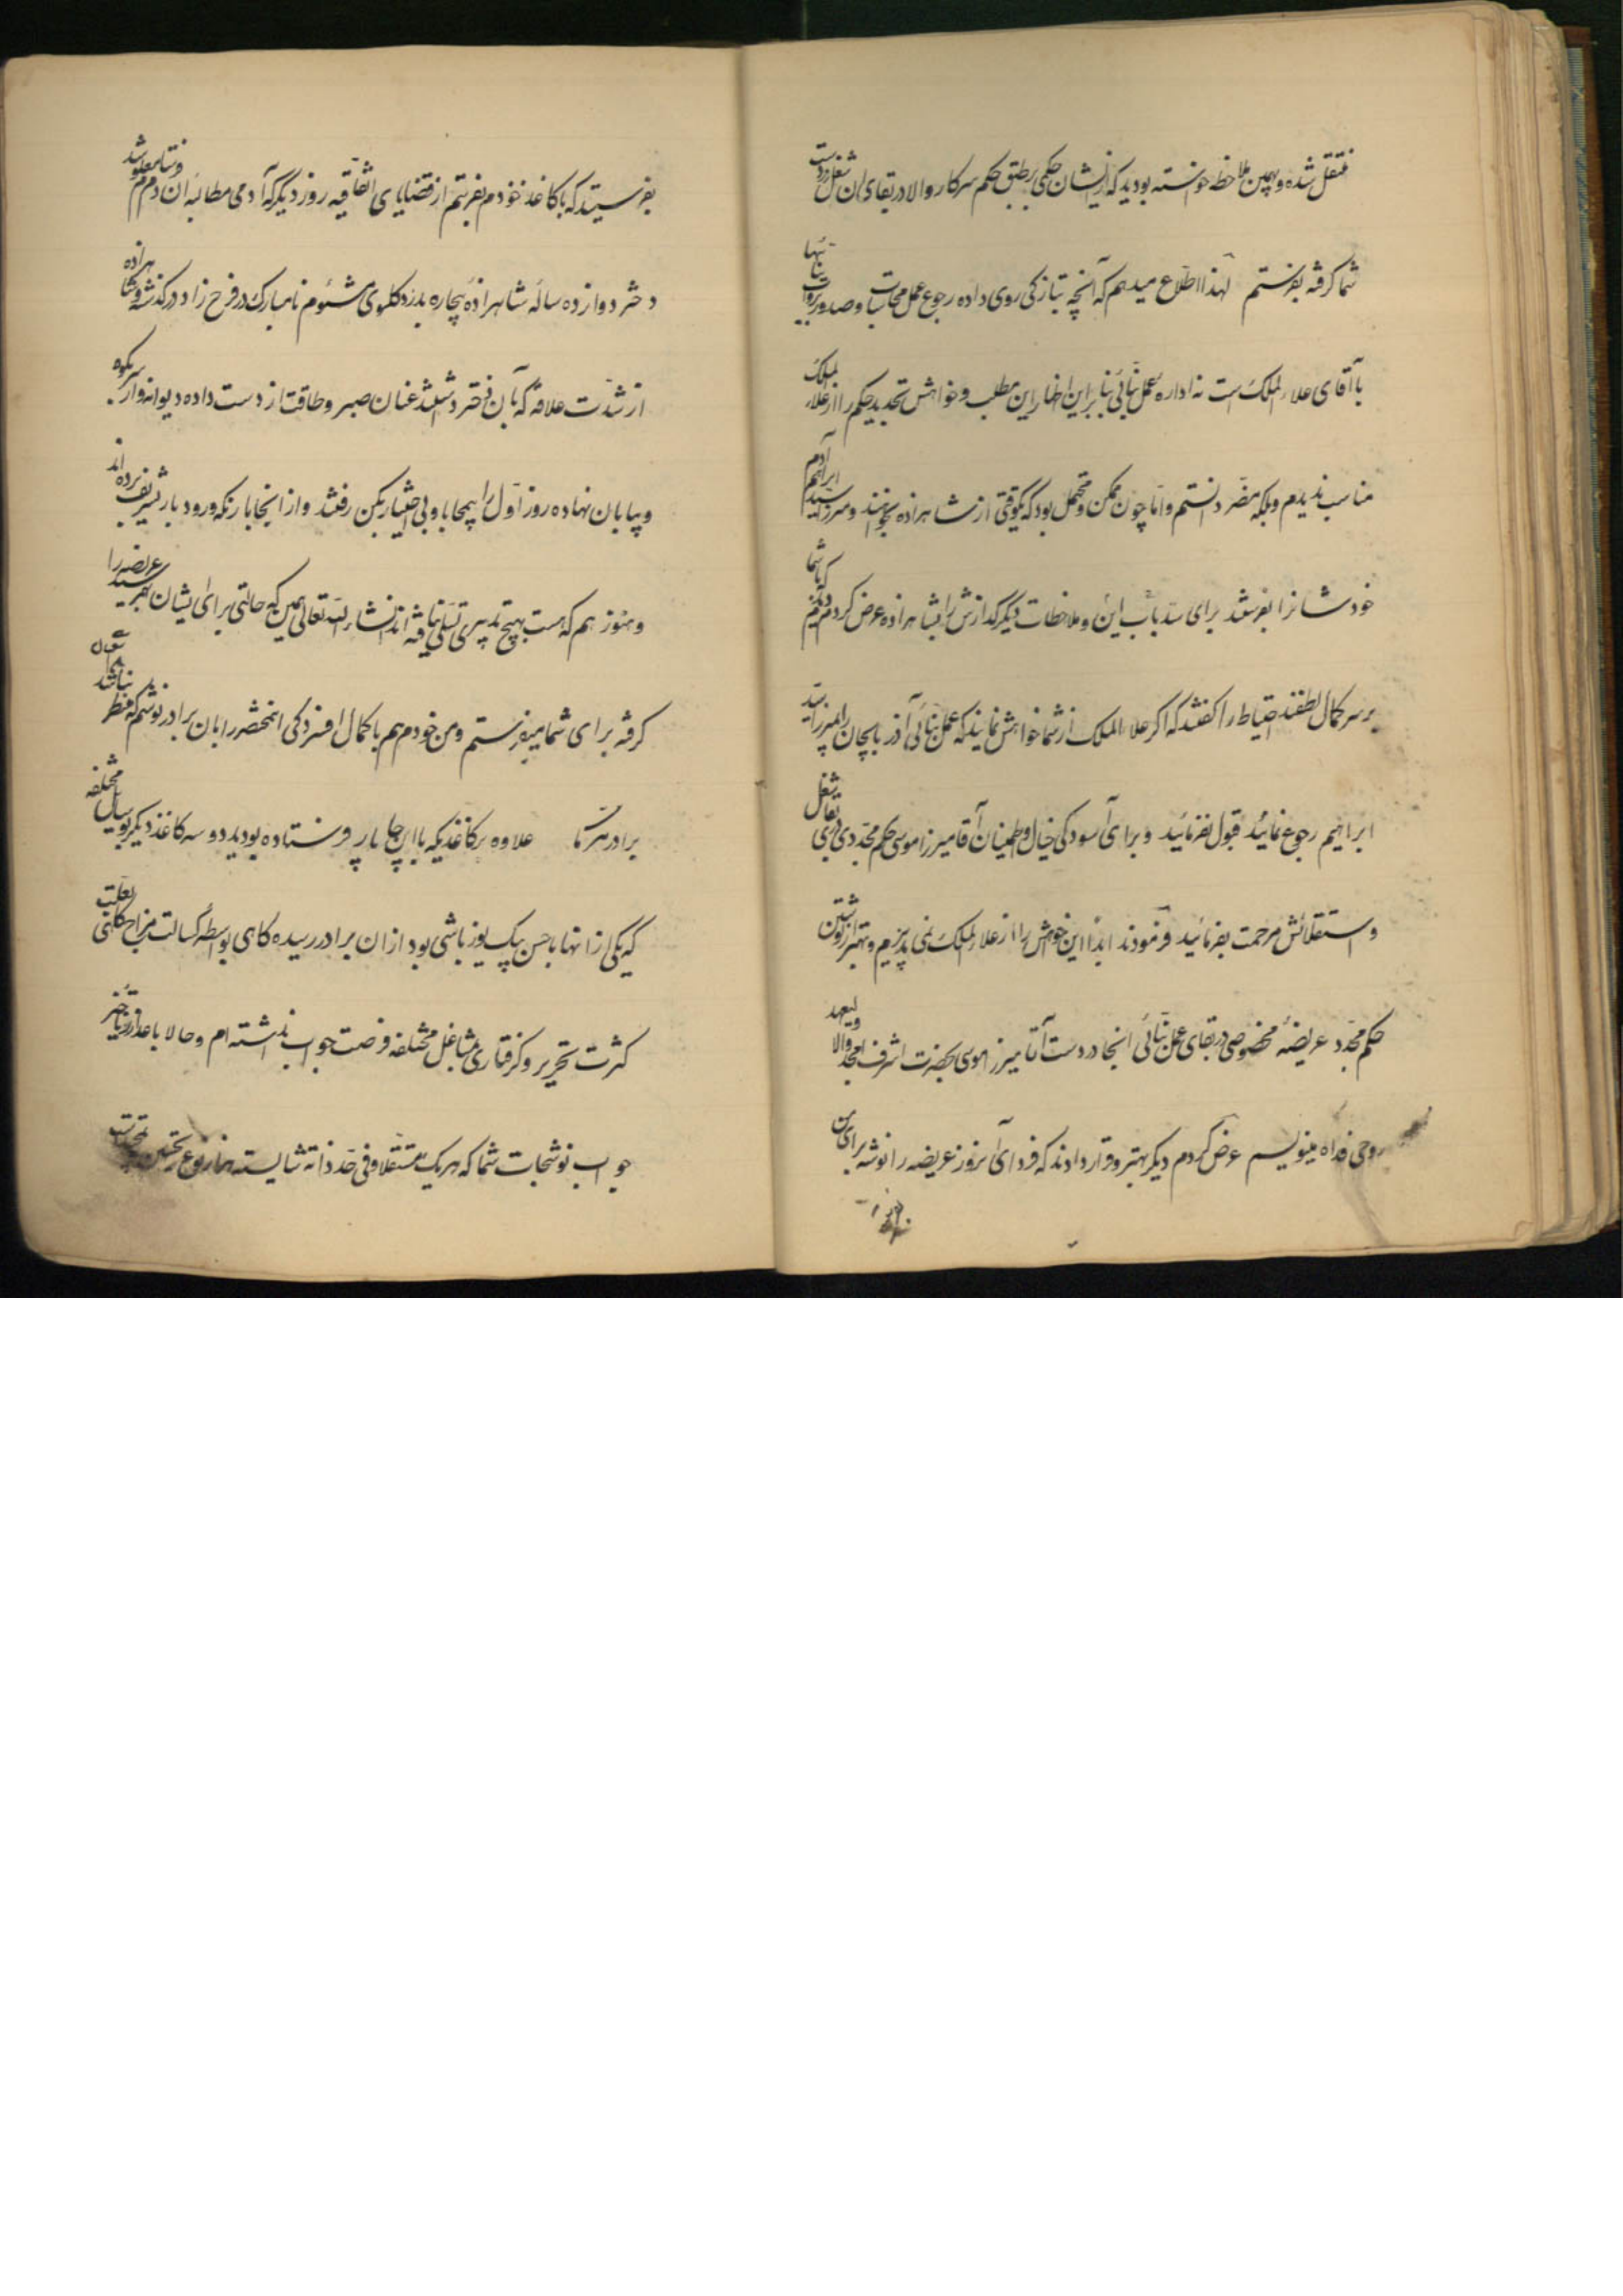 منتقل شده و بهمین ملاحظه خواسته بودید که از ایشان حکمی بر طبق حکم سرکار والا در بقای آن شغل در دست
شما گرفته بفرستم لهذا اطلاع میدهم که آنچه بتازکی روی داده رجوع عمل محاسبات و صدور بروات بنائیها
با آقای علاء الملک است نه اداره عمل بنائی بنابراین اظهار این مطلب و خواهش تجدید حکم را از علاء الملک
مناسب ندیدم و بلکه مضر دانستم و اما چون ممکن و محتمل بود که یکوقتی از شاهزاده بخواهند و میرزا سید ابراهیم آدم
خودشانرا بفرستند برای سد باب این و ملاحظات دیگر گذارش را بشاهزاده عرض کردم دیدم که با شما
بر سر کمال لطفند احتیاط را گفتند که اگر علاء الملک از شما خواهش نمایند که عمل بنائی آذربایجان را بمیرزا سید
ابراهیم رجوع نمائید قبول نفرمائید و برای آسودکی خیال و اطمینان آقا میرزا موسی حکم مجددی در بقای شغل
و استقلالش مرحمت بفرمائید فرمودند ابدا این خواهش را از علاء الملک نمی پذیرم و بهتر از نوشتن
حکم مجدد عریضه مخصوصی در بقای عمل بنائی انجا در دست آقا میرزا موسی بحضرت اشرف امجد والا ولیعهد
روحی فداه مینویسم عرض کردم دیگر بهتر و قرار دادند که فردای آنروز عریضه را نوشته برای من
بفرستند که با کاغذ خودم بفرستم از قضایای اتفاقیه روز دیگر که آدمی مطالبه آن فرستادم معلوم شد
دختر دوازده ساله شاهزاده بیچاره بدرد کلوی مشئوم نامبارک در فرح زاد درگذشته و شاهزاده
از شدت علاقه که بآن دختر داشتند عنان صبر و طاقت از دست داده دیوانه وار سر بکوه
و بیابان نهاده روز اول را بیمحابا و بی اختیار بکن رفتند و از انجا باز نکه ورودبار تشریف برده اند
و هنوز هم که هست بهیچ تدبیری تسلی نیافته اند انشاء الله تعالی همین که حالتی برای ایشان بهم رسید عریضه را
گرفته برای شما میفرستم و من خودم هم با کمال افسردکی این مختصر را بان برادر نوشتم که منتظر نباشد
برادر علاوه بر کاغذیکه با این چاپار فرستاده بودید دو سه کاغذ دیگر بوسایل مختلفه
که یکی از انها با حسن بیک یوزباشی بود از ان برادر رسیده کاهی بواسطه کسالت مزاج کاهی بعلت
کثرت تحریر و گرفتاری مشاغل مختلفه فرصت جواب نداشته ام و حالا با عذر تاخیر
جواب نوشتجات شما که هر یک مستقلا و فی حد ذاته شایسته هزار نوع تحسین